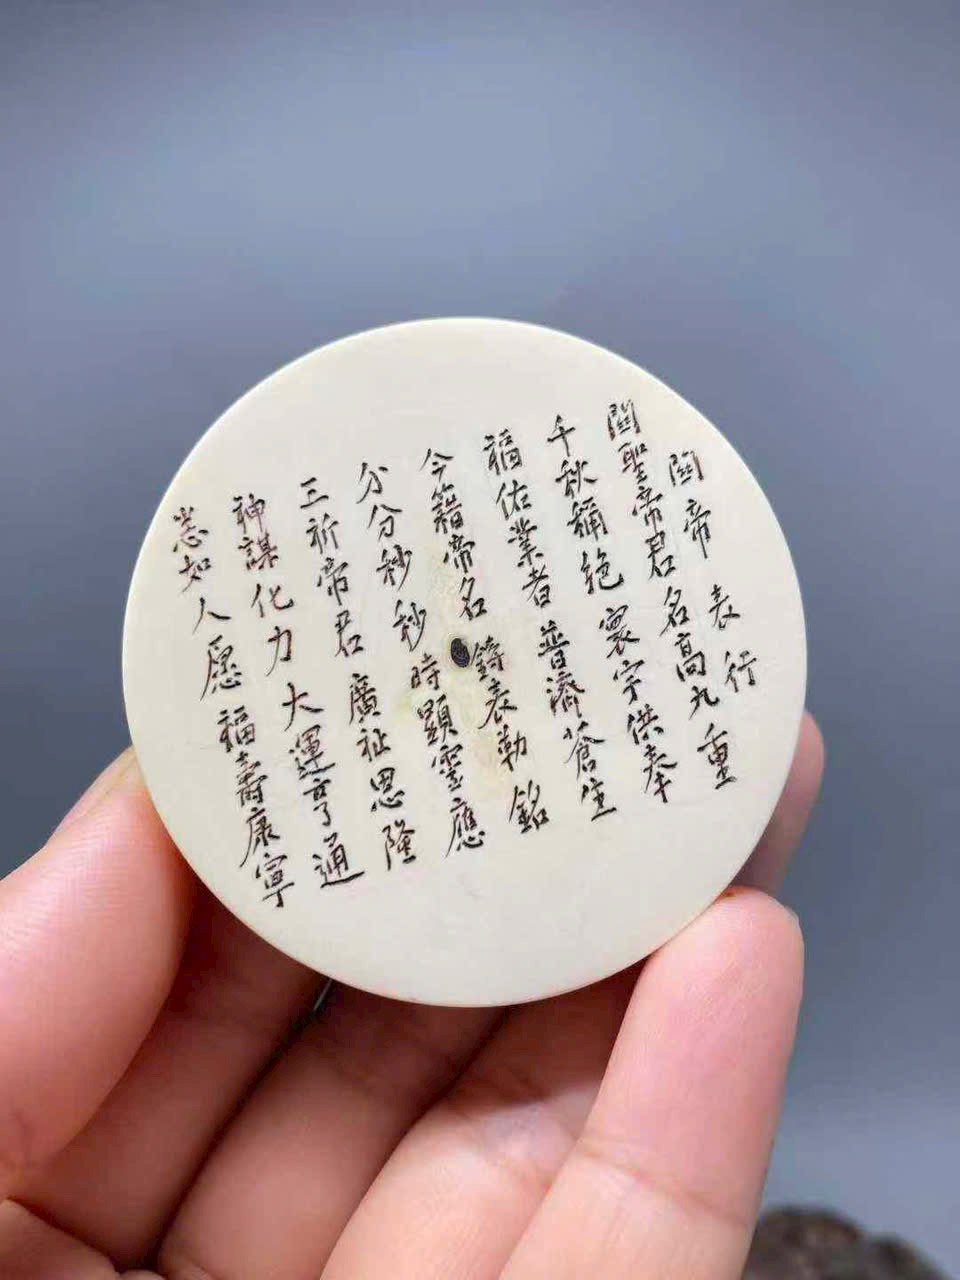 關帝 表行
關聖帝君 名高九重
千秋稱絶 寰宇供奉
福佑業者 普濟蒼生
今籍帝名 鑄表勒銘
分分秒秒 時顯靈應
三祈帝君 廣祉恩隆
神謀化力 大運亨通
悉如人愿 福壽康寧